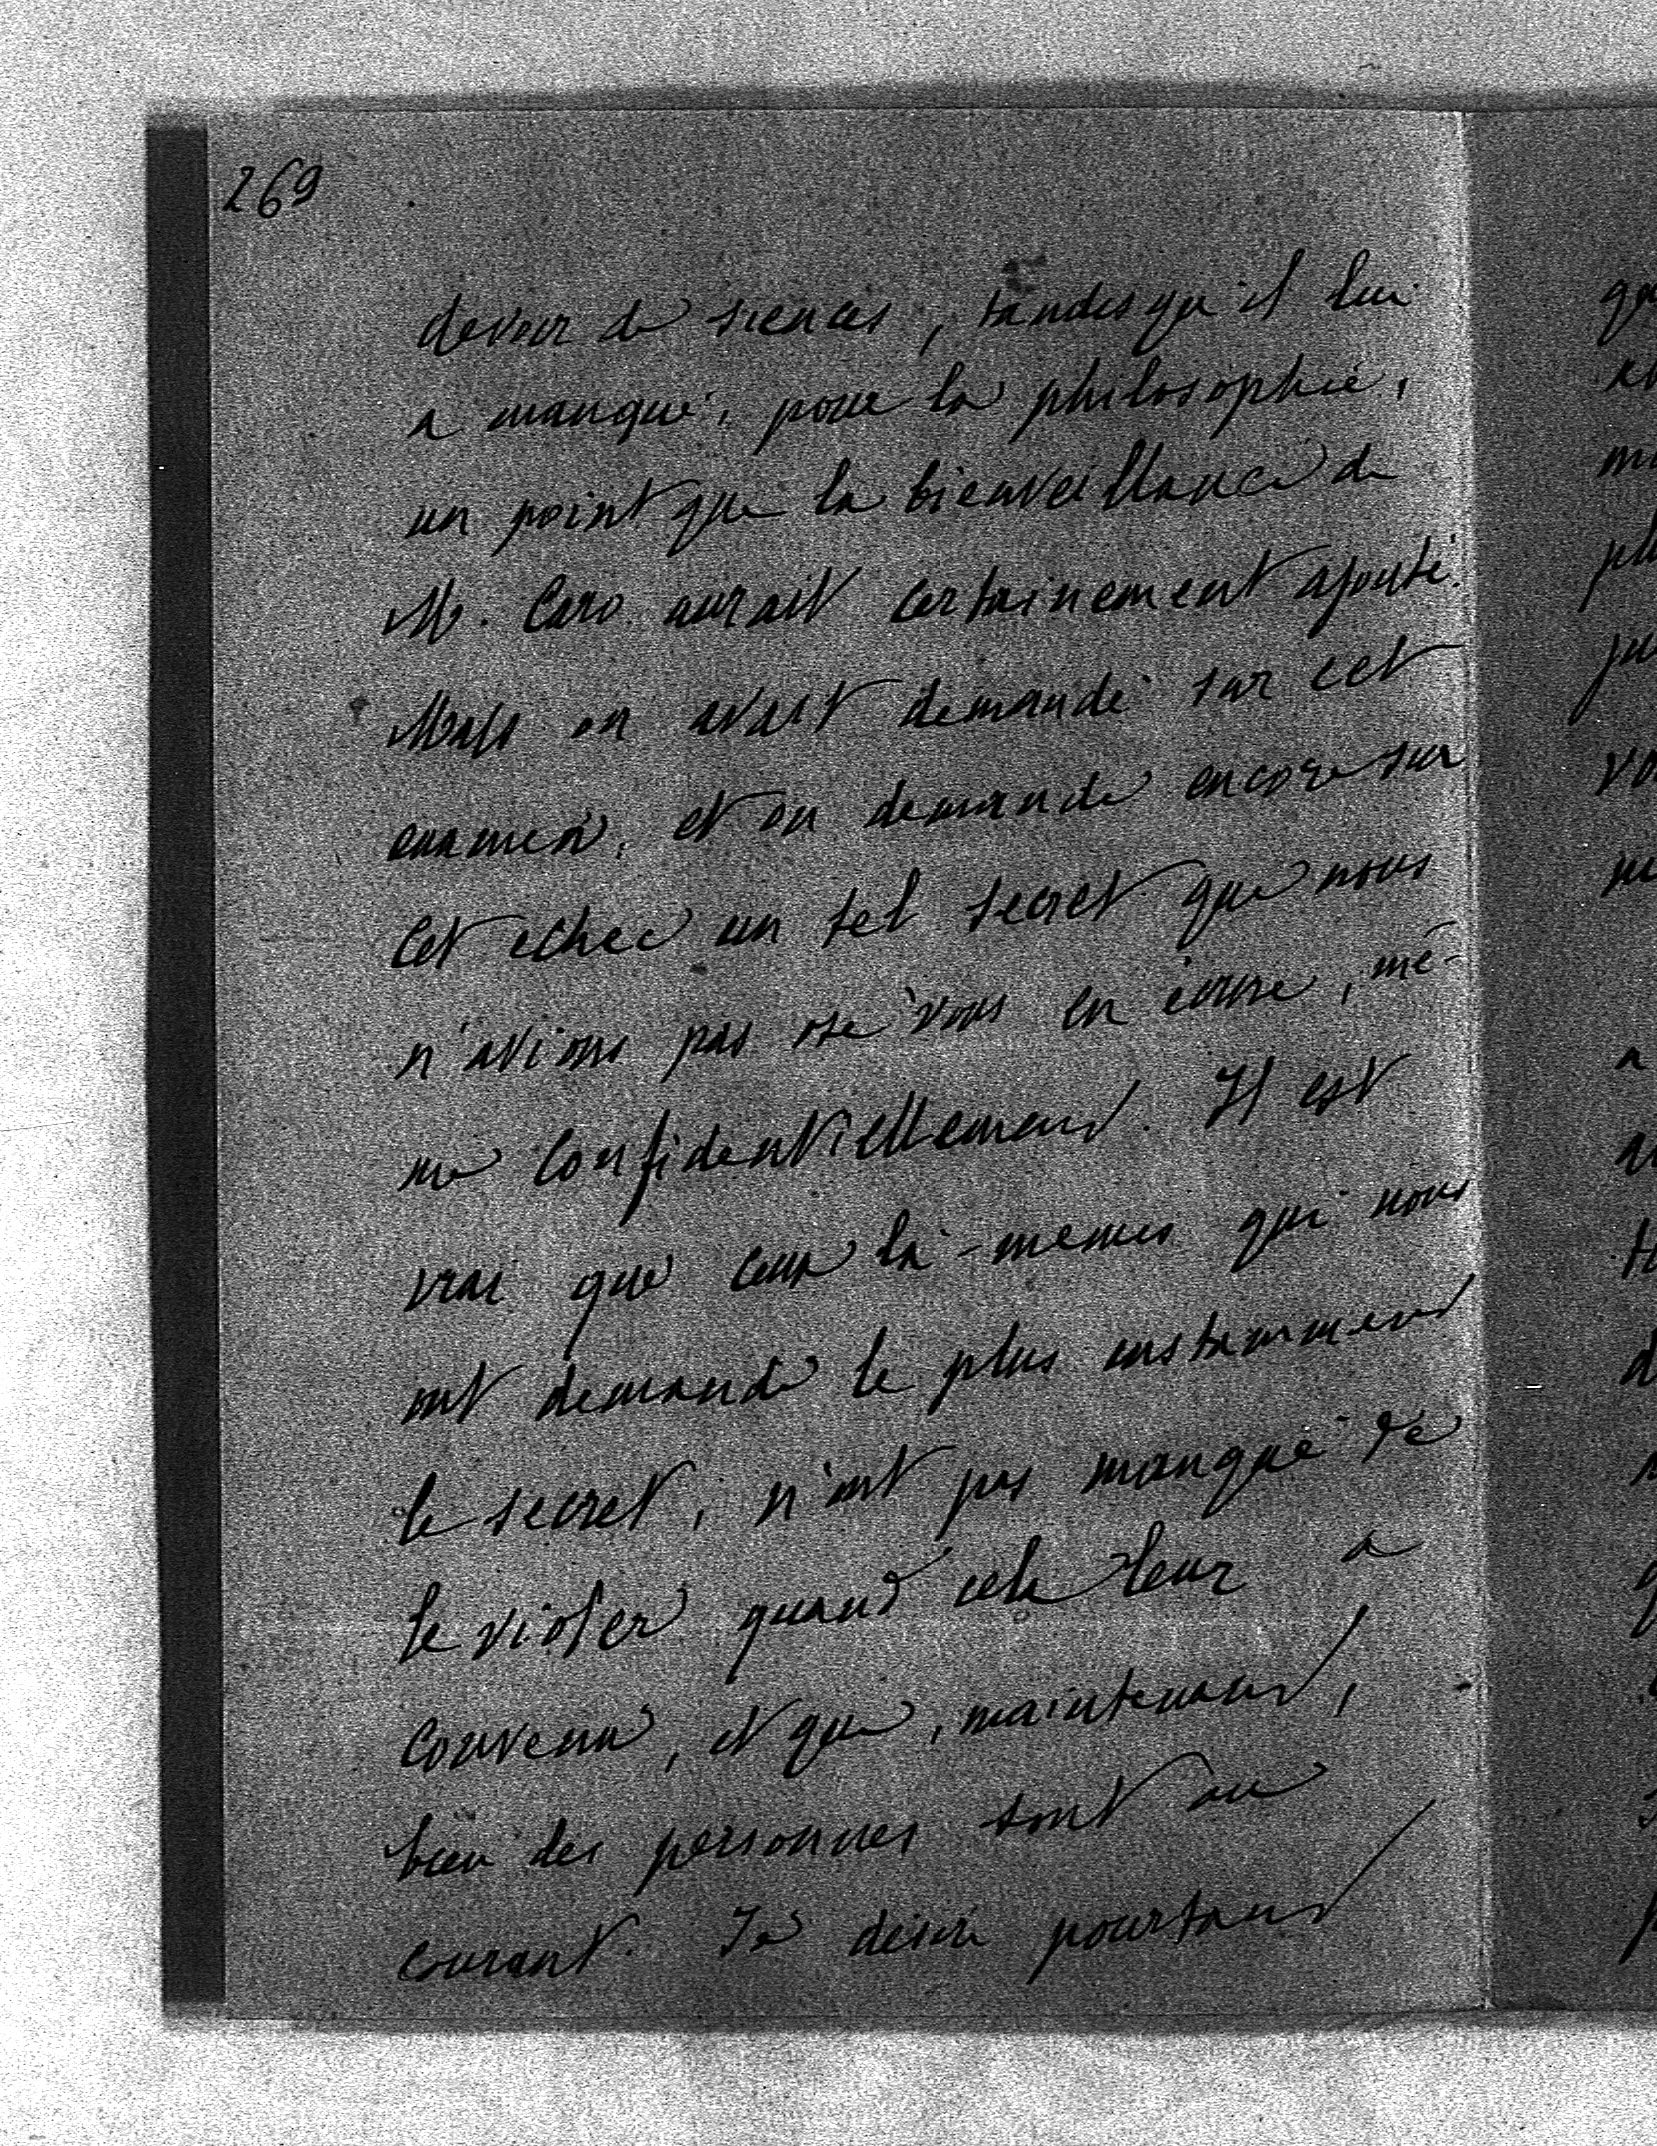 269
devoir de siences, tandis qu'il lui
a manqué, pour la philosophie,
un point que la bienveillance de
M. Caro aurait certainement ajouté.
Mais on avait demandé sur cet
examen, et on demande encore sur
cet echec un tel secret que nous
n'avions pas osé vous en écrire, mê-
me confidentiellement. Il est
vrai que ceux là-memes qui nous
ont demandé le plus instamment
le secret, n'ont pas manqué de
le violer quand cela leur a
convenu, et que, maintenant,
bien des personnes sont au
courant. Je désire pourtant